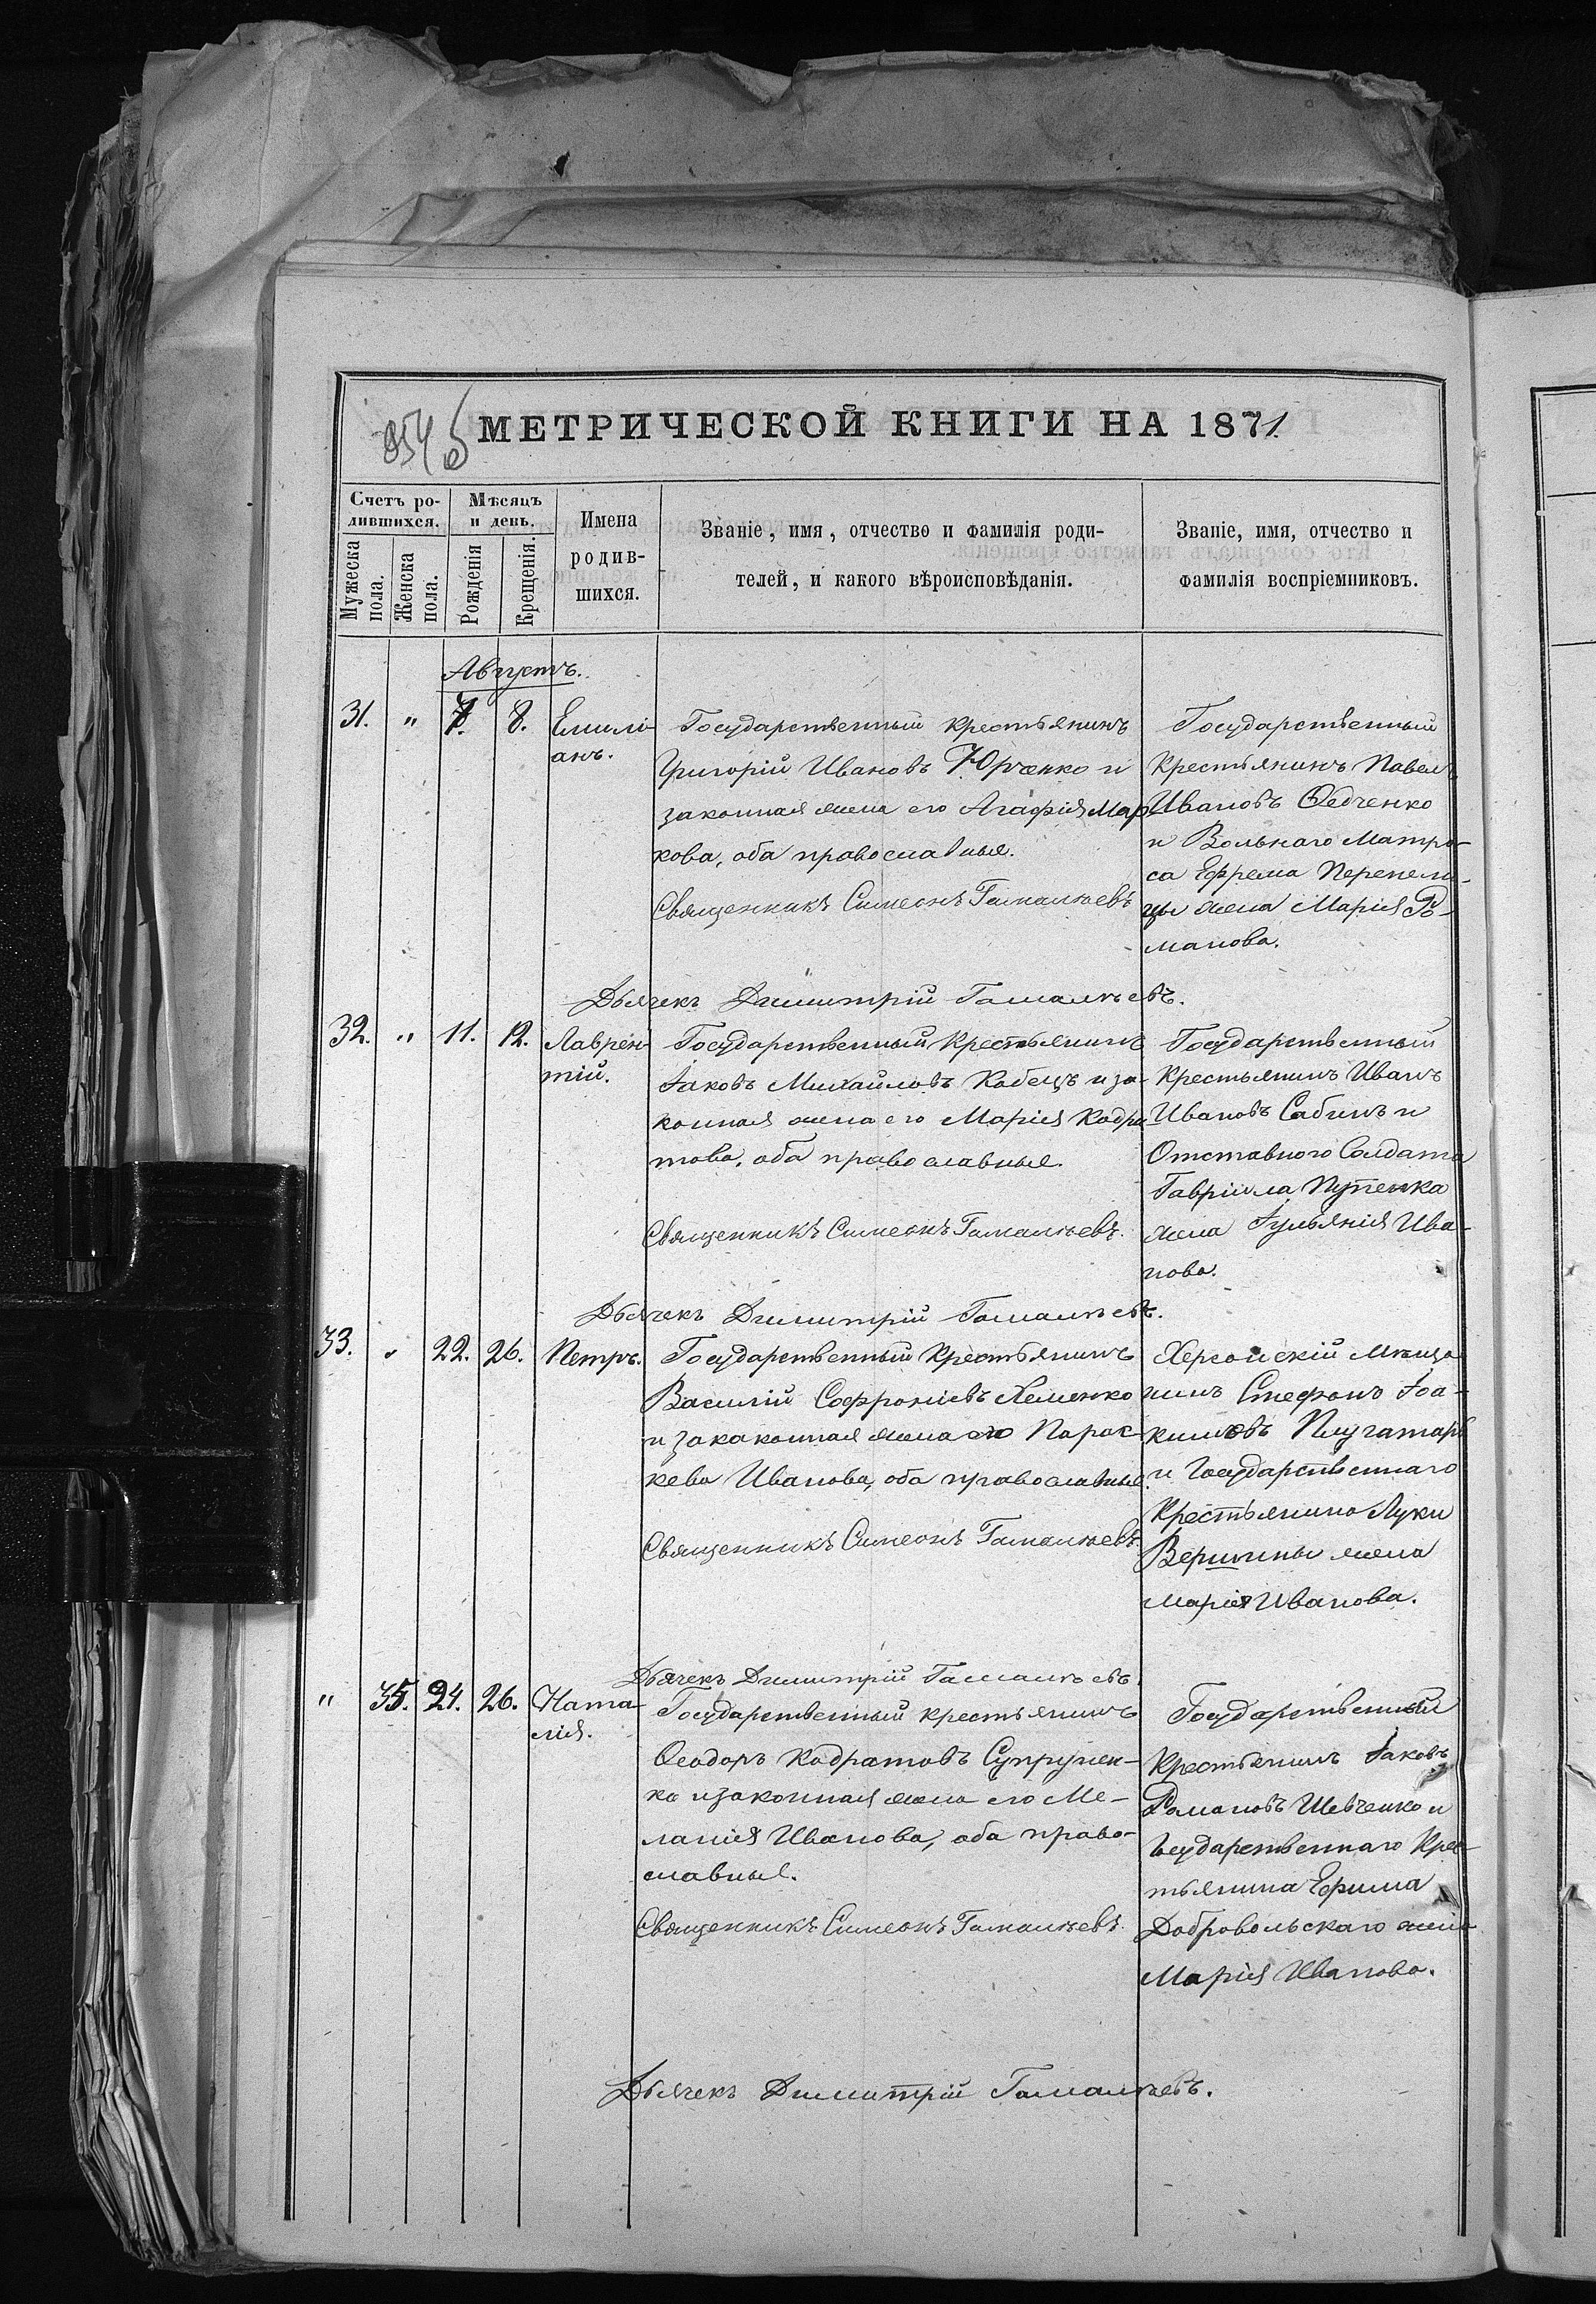 МЕТРИЧЕСКОЙ КНИГИ НА 1871.
Счетъ ро-
дившихся.
Мужеска
пола.
Женска
пола.
Мѣсяцъ
и день.
Рожденія
Крещенія.
Имена
родив-
шихся.
Званіе, имя, отчество и фамилія роди-
телей, и какого вѣроисповѣданія.
Званіе, имя, отчество и
фамилія воспріемниковъ.
Августъ.
31. " 7. 8.
Емилі-
анъ.
Государственный крестьянинъ
Григорій Ивановъ Юрченко и
законная жена его Агафія Мар-
кова, оба православные.
Священникъ Симеонъ Гамалѣевъ
Государственный
крестьянинъ Павелъ
Ивановъ Ѳедченко
и Вольнаго Матро-
са Ефрема Перепели-
цы жена Марія Ро-
манова.
Дьячекъ Димитрій Гамалѣевъ.
32. " 11. 12.
Лаврен-
тій.
Государственный Крестьянинъ
Іаковъ Михайловъ Кобецъ и за-
конная жена его Марія Кодра
това, оба православные.
Священникъ Симеонъ Гамалѣевъ.
Государственный
Крестьянинъ Иванъ
Ивановъ Сабинъ и
Отставного Солдата
Гавріила Путенка
жена Іульянія Ива-
нова.
Дьячекъ Димитрій Гамалѣевъ.
33. " 22. 26.
Петръ.
Государственный Крестьянинъ
Василій Софроніевъ Хеменко
и закаконная жена его Парас-
кева Иванова, оба православные.
Священникъ Симеонъ Гамалѣевъ.
Херсонскій мѣща
нинъ Стефанъ Іоа-
кимовъ Плугатарь
и Государственнаго
Крестьянина Луки
Вершины жена
Марія Иванова.
Дьячекъ Димитрій Гамалѣевъ.
" 35. 24. 26.
Ната-
лія.
Государственный крестьянинъ
Ѳеодоръ Кодратовъ Супрунен-
ко и законная жена его Ме-
ланія Иванова, оба право-
славные.
Священникъ Симеонъ Гамалѣевъ.
Государственный
Крестьянинъ Іаковъ
Романовъ Шевченко и
Государственнаго Крес-
тьянина Ефима
Добровольскаго жена
Марія Иванова.
Дьячекъ Димитрій Гамалѣевъ.